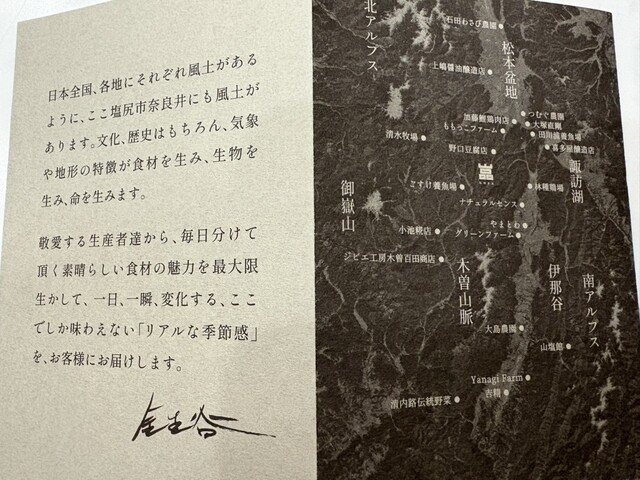 日本全国、各地にそれぞれ風土がある
ように、ここ塩尻市奈良井にも風土が
あります。文化、歴史はもちろん、気象
や地形の特徴が食材を生み、生物を
生み、命を生みます。
敬愛する生産者達から、毎日分けて
頂く素晴らしい食材の魅力を最大限
生かして、一日、一瞬、変化する、ここ
でしか味わえない「リアルな季節感」
を、お客様にお届けします。
北アルプス
石田わさび農園
松本盆地
上嶋醤油醸造店
つむぐ農園
加藤鯉鶏肉店
大塚直剛
ももっこファーム
田川浦養魚場
清水牧場
喜多屋醸造店
野口豆腐店
諏訪湖
御嶽山
こすけ養魚場
林種鶏場
ナチュラルセンス
やまとわ
小池糀店
グリーンファーム
ジビエ工房木曽百田商店
木曽山脈
伊那谷
南アルプス
大島農園
山塩館
Yanagi Farm
吉精
清内路伝統野菜